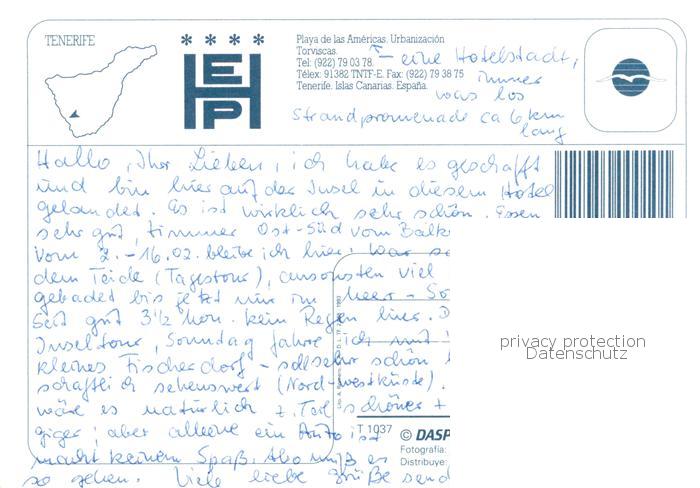 TENERIFE
* * * *
H E P
Playa de las Américas. Urbanización
Torviscas.
Tel: (922) 79 03 78.
Télex: 91382 TNTF-E. Fax: (922) 79 38 75
Tenerife. Islas Canarias. España.
← eine Hotelstadt,
immer
was los
Strandpromenade ca 6 km
lang
Hallo, Ihr Lieben, ich habe es geschafft
und bin hier auf der Insel in diesem Hotel
gelandet. Es ist wirklich sehr schön. Essen
sehr gut, Zimmer Ost-Süd vom Balk
vom 2.-16.02. bleibe ich hier. War
dem Teide (Tagestour), ansonsten viel
gebadet bis jetzt nur im Meer - So
Seit gut 3½ Mon. kein Regen hier. D
Inseltour, Sonntag fahre ich mit
kleines Fischerdorf - soll sehr schön
schaftlich sehenswert (Nord-westküste).
wäre es natürlich z. Teil schöner +
giger, aber alleine ein Auto ist
macht keinen Spaß. Also muß es
so gehen. Viele liebe Grüße send
privacy protection
Datenschutz
T 1037
© DASP
Fotografía:
Distribuye: